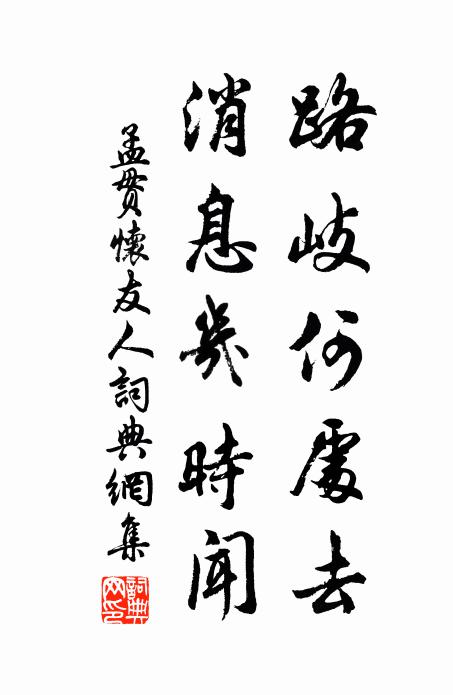 路岐何處去
消息幾時聞
孟貫懷友人詞典網集
詞典網印